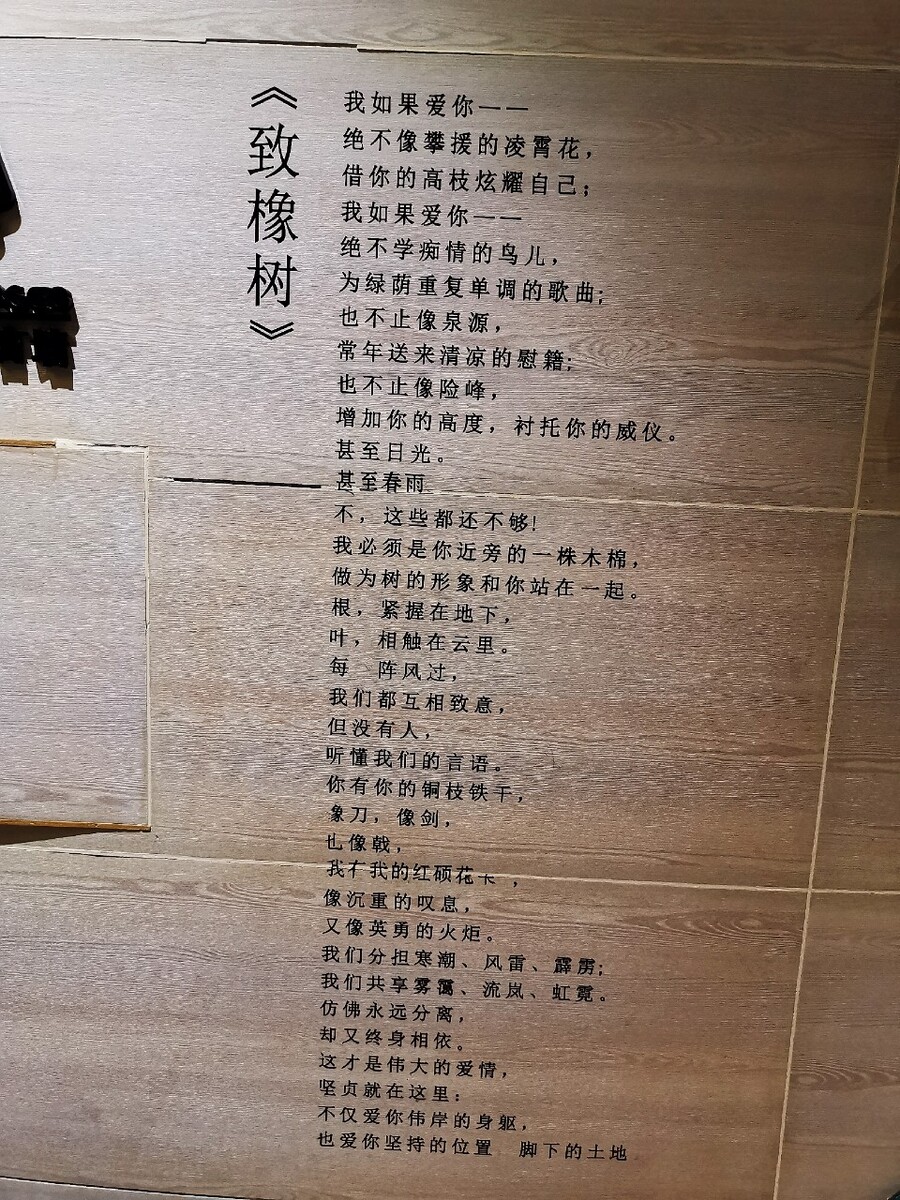 《致橡树》
我如果爱你——
绝不像攀援的凌霄花，
借你的高枝炫耀自己；
我如果爱你——
绝不学痴情的鸟儿，
为绿荫重复单调的歌曲；
也不止像泉源，
常年送来清凉的慰籍；
也不止像险峰，
增加你的高度，衬托你的威仪。
甚至日光。
甚至春雨
不，这些都还不够！
我必须是你近旁的一株木棉，
做为树的形象和你站在一起。
根，紧握在地下，
叶，相触在云里。
每 阵风过，
我们都互相致意，
但没有人，
听懂我们的言语。
你有你的铜枝铁干，
象刀，像剑，
也像戟，
我有我的红硕花 ，
像沉重的叹息，
又像英勇的火炬。
我们分担寒潮、风雷、霹雳；
我们共享雾霭、流岚、虹霓。
仿佛永远分离，
却又终身相依。
这才是伟大的爱情，
坚贞就在这里：
不仅爱你伟岸的身躯，
也爱你坚持的位置 脚下的土地